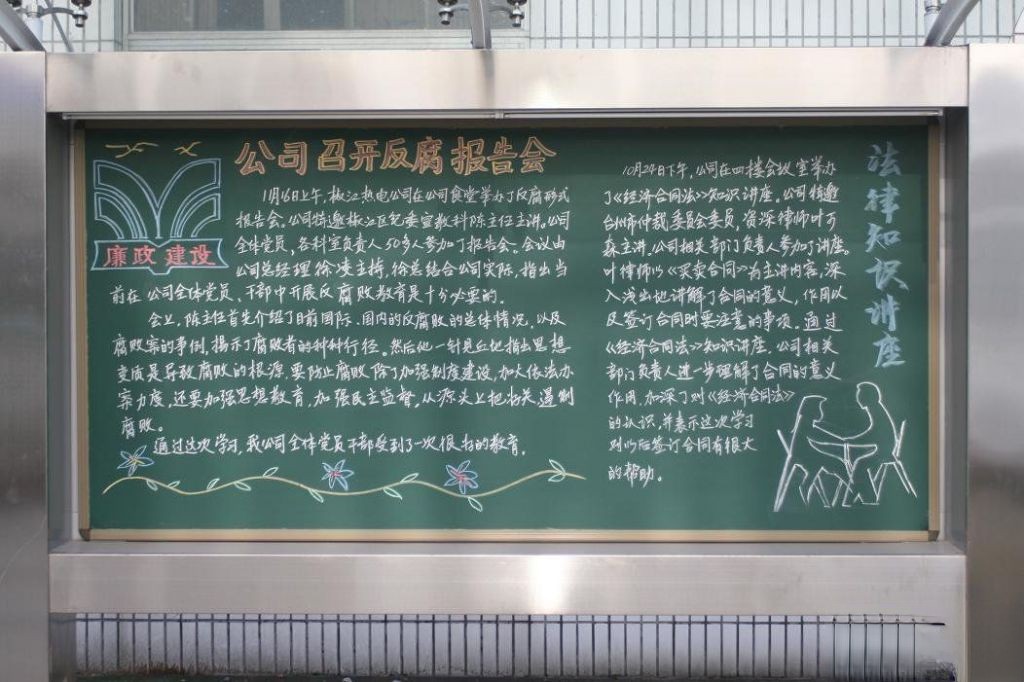 公司召开反腐报告会
廉政建设
11月16日上午,椒江热电公司在公司食堂举办了反腐形式
报告会。公司特邀椒江区纪委宣教科陈主任主讲。公司
全体党员,各科室负责人50多人参加了报告会。会议由
公司总经理徐凌主持,徐总结合公司实际,指出当
前在公司全体党员、干部中开展反腐败教育是十分必要的。
会上,陈主任首先介绍了目前国际、国内的反腐败的总体情况,以及
腐败案的事例,揭示了腐败者的种种行径。然后他一针见血地指出思想
变质是导致腐败的根源。要防止腐败除了加强制度建设,加大依法办
案力度,还要加强思想教育,加强民主监督,从源头上把好关遏制
腐败。
通过这次学习,我公司全体党员干部受到了一次很好的教育。
法律知识讲座
10月24日下午,公司在四楼会议室举办
了《经济合同法》知识讲座。公司特邀
台州市仲裁委员会委员,资深律师叶万
森主讲。公司相关部门负责人参加了讲座。
叶律师以《买卖合同》为主讲内容,深
入浅出地讲解了合同的意义,作用以
及签订合同时要注意的事项。通过
《经济合同法》知识讲座,公司相关
部门负责人进一步理解了合同的意义
作用,加深了对《经济合同法》
的认识,并表示这次学习
对以后签订合同有很大
的帮助。